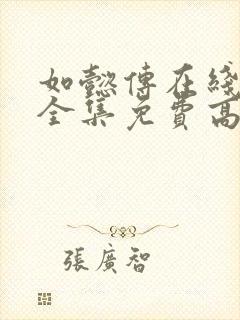 如懿傳在綫
全集免費高
張廣智